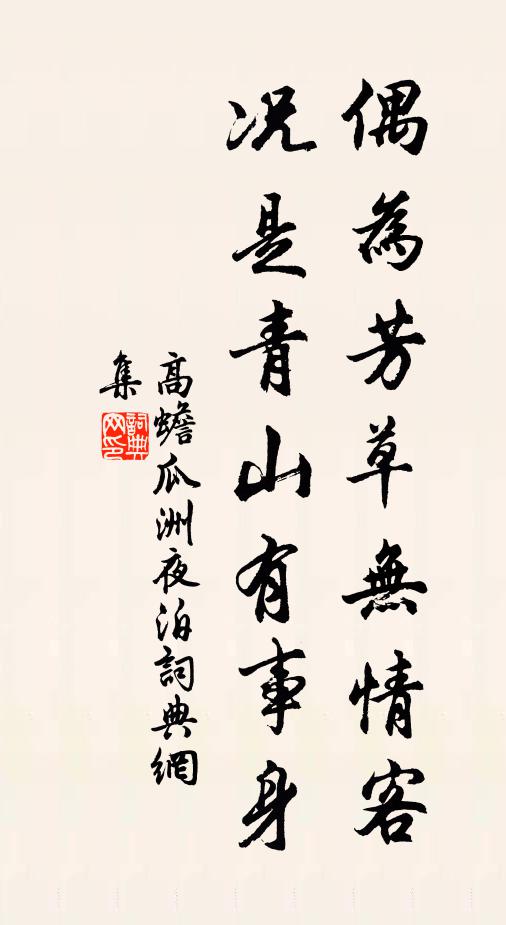 偶為芳草無情客
况是青山有事身
高蟾瓜洲夜泊詞典網
集
詞典
网印